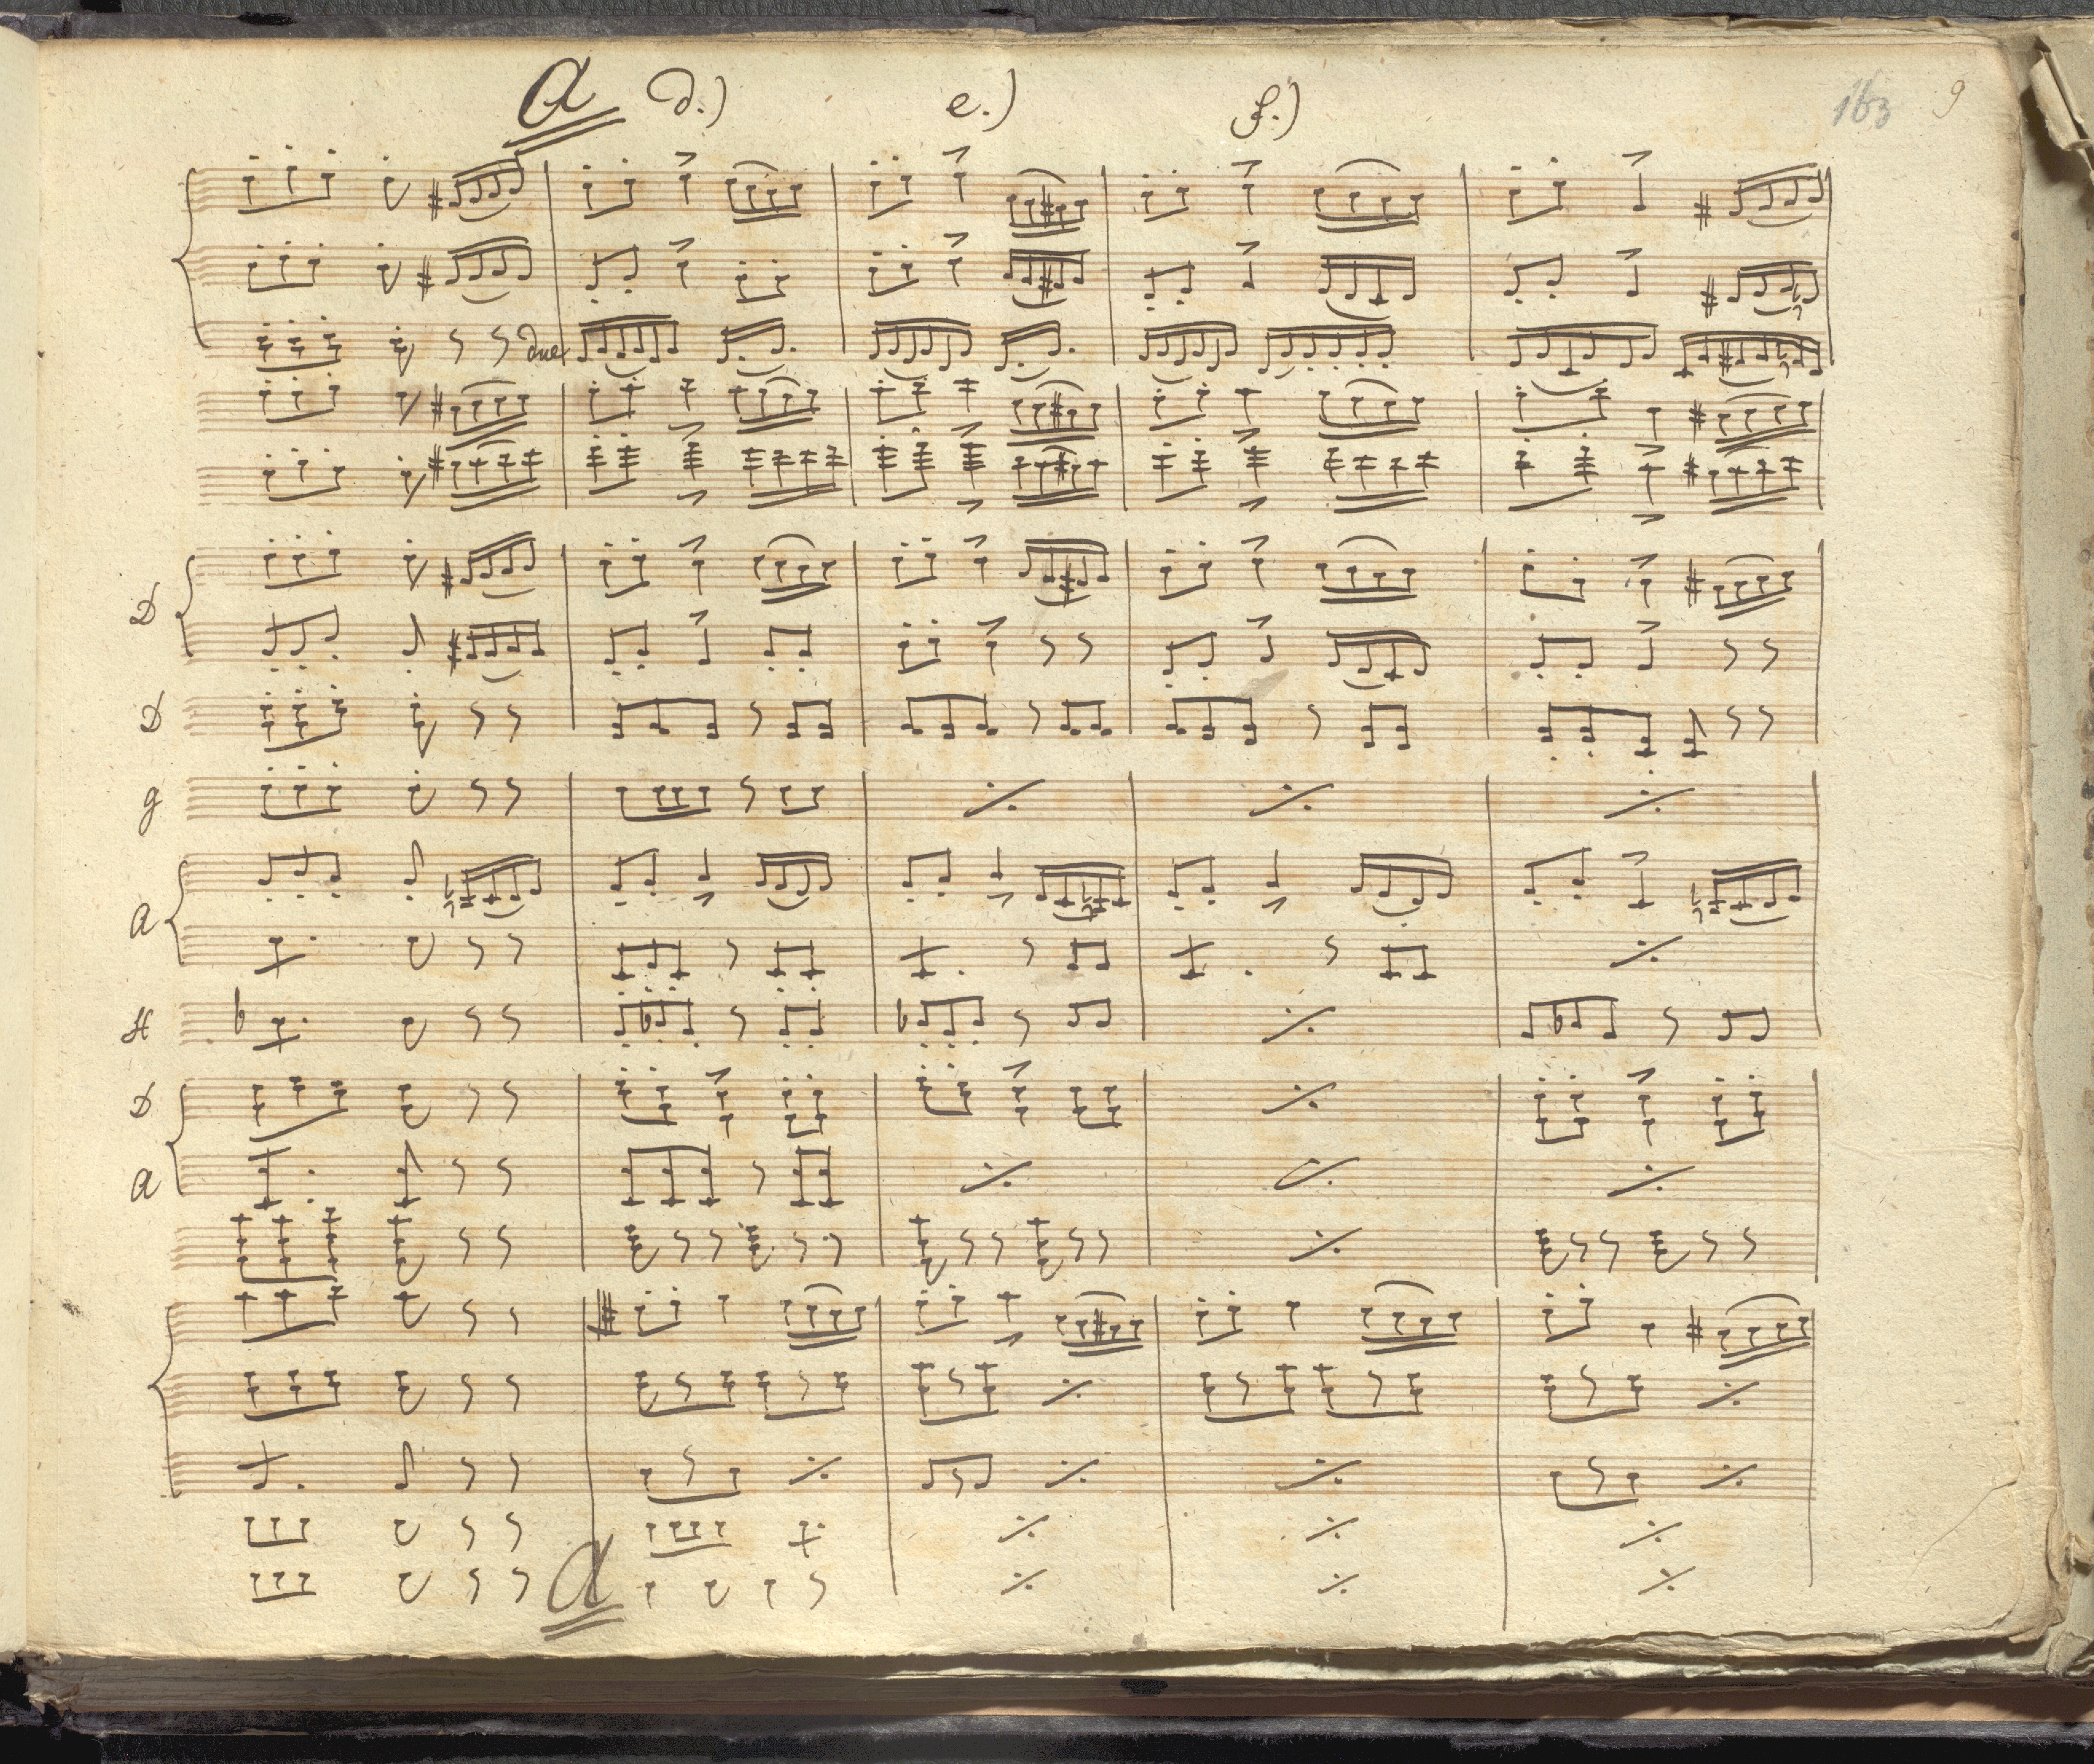 A d.) e.) f.) 163 9
due
D
D
g
A
H
D
A
A